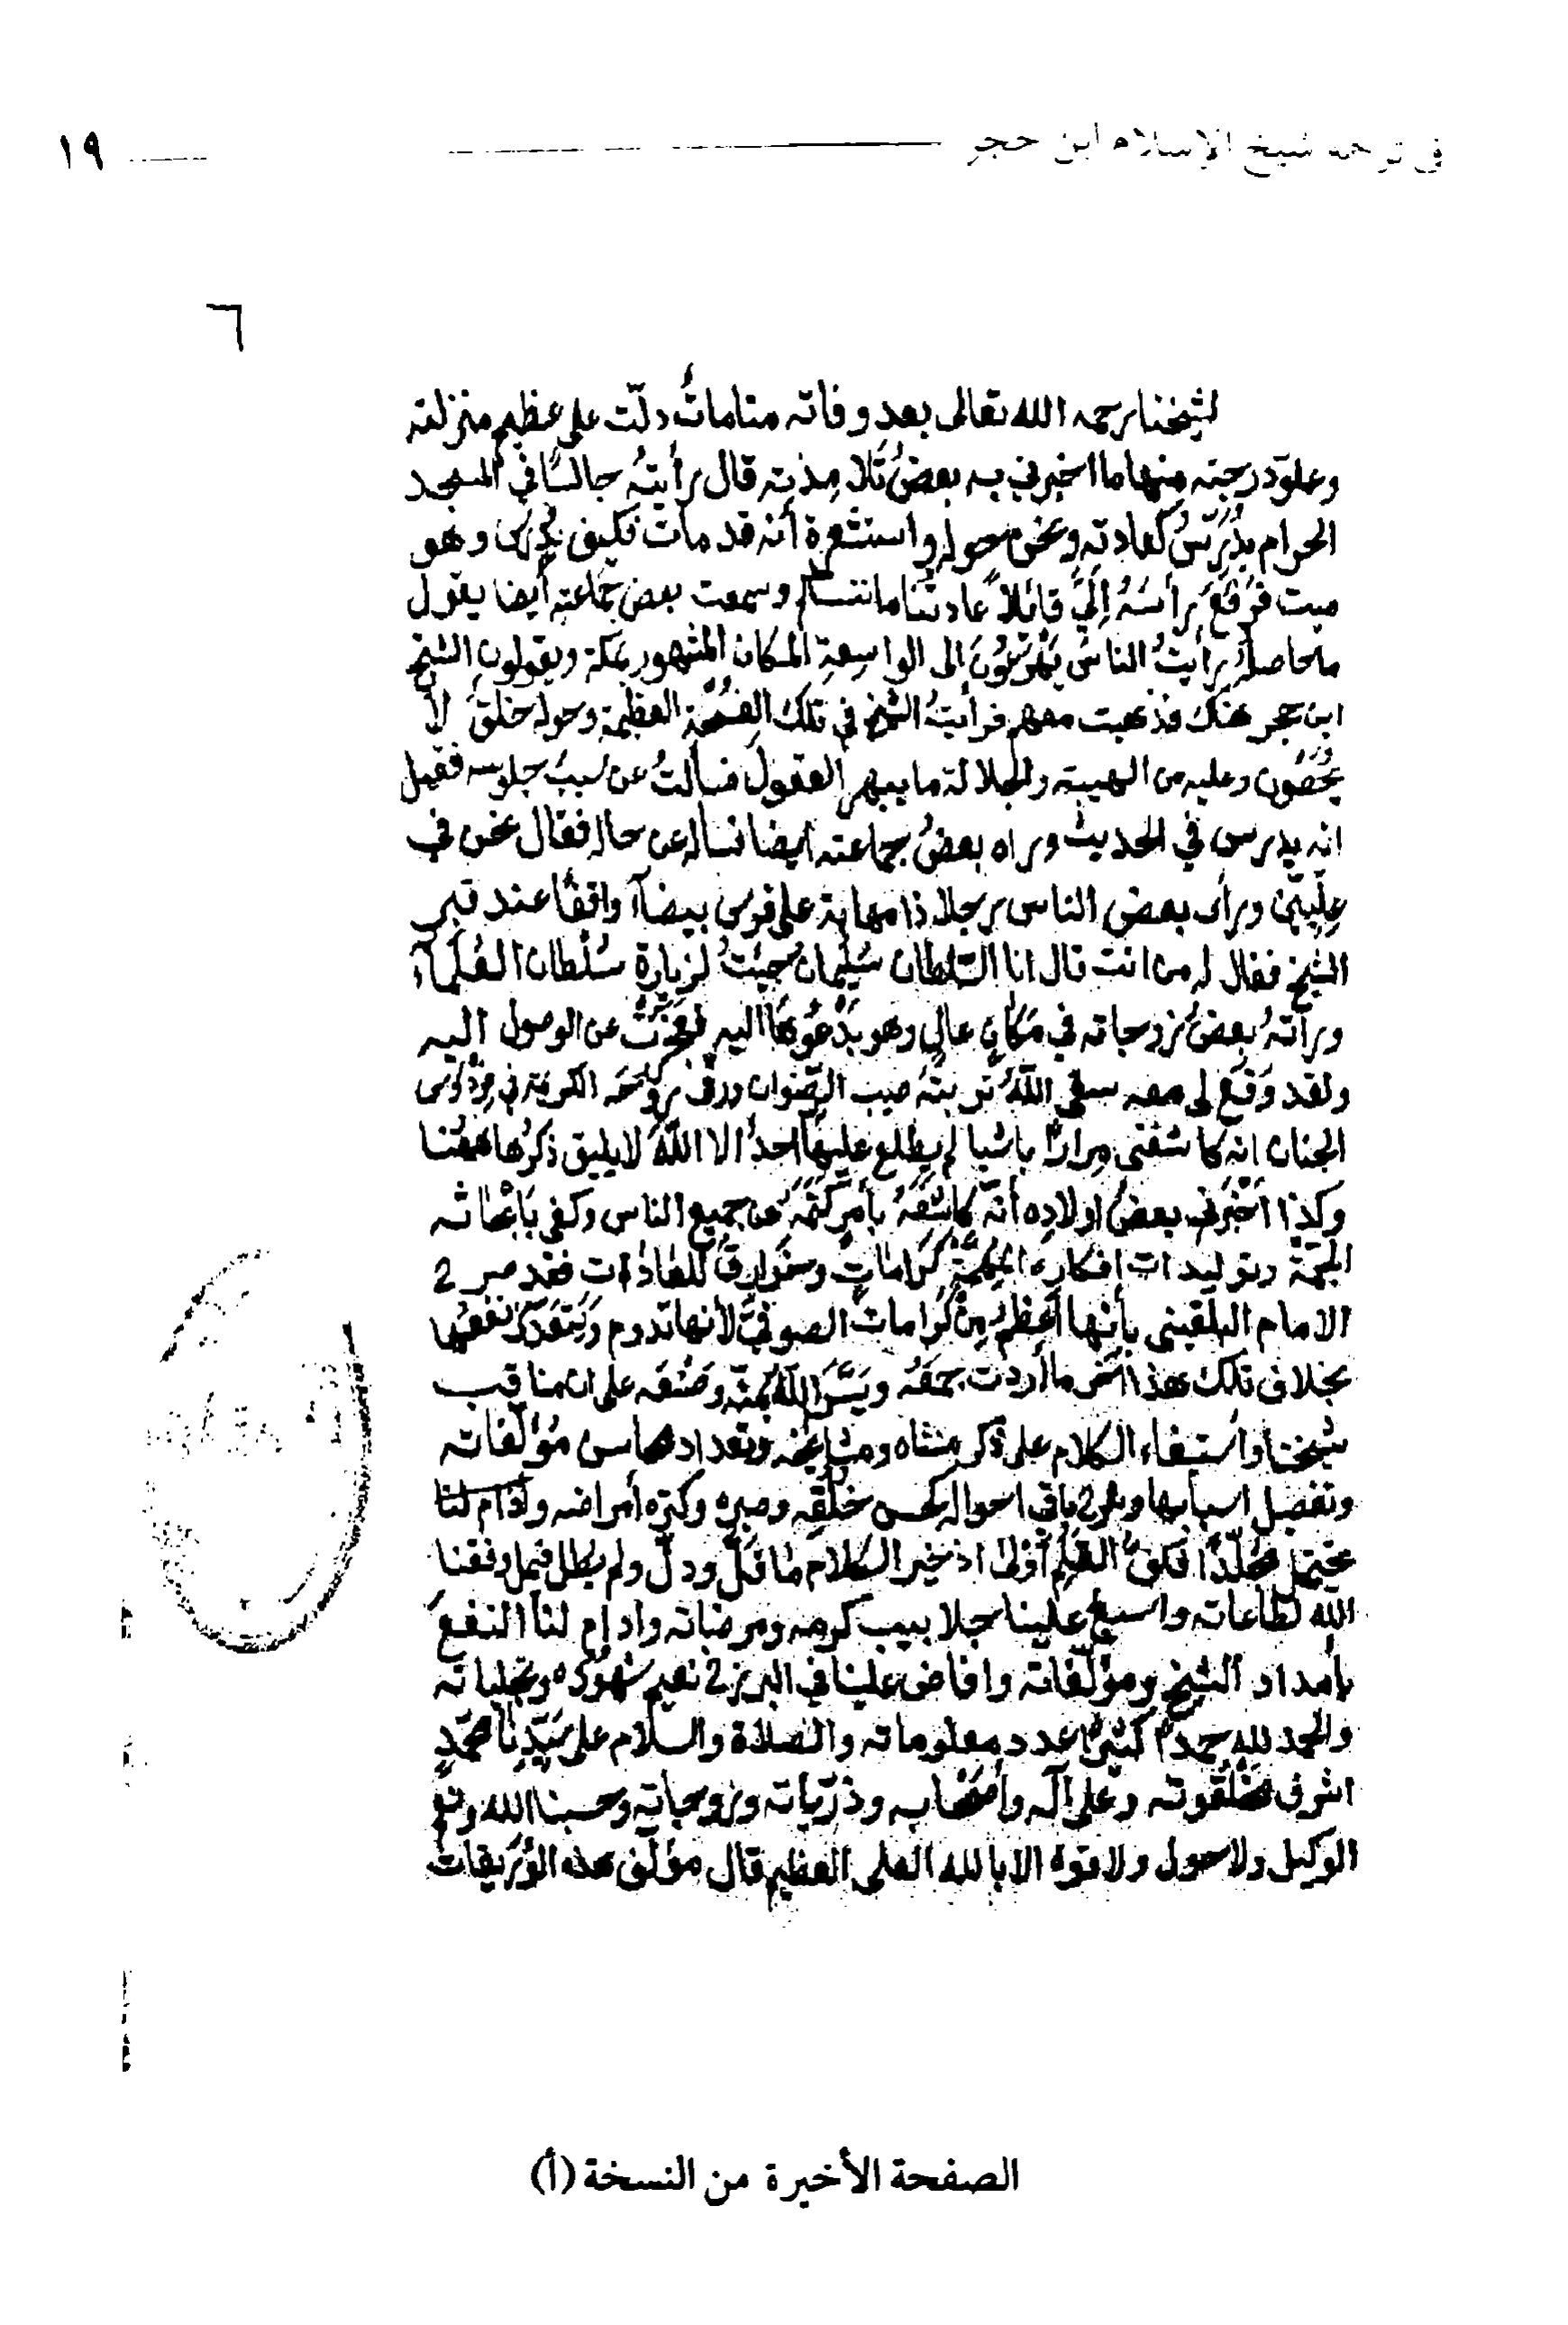 في ترجمة شيخ الإسلام ابن حجر ١٩
٦
لشيخنا رحمه الله تعالى بعد وفاته مناماتٌ دلّت على عظيم منزلته
وعلوّ درجته منها ما اخبرني به بعضُ تَلامِذته قال رأيتُه جالسًا في المسجد
الحرام يُدَرّسُ كعادته ونحن حوله واستشعرة أنه قد مات فكيف يُدرّس وهو
ميت فرَفَعَ رأسَهُ إليَّ قائلاً عادتُنا ما ننساها وسمعت بعض جماعته أيضا يقول
ما حاصله رأيتُ الناسَ يَهْرَعُونَ الى الواسِعةِ المكان المشهور بمكة ويقولون الشيخ
ابن حجر هناك فذهبت معهم فرأيتُ الشيخ في تلك الفُسْحَة العظيمة وحوله خلقٌ لا
يُحْصَون وعليه من الهيبة والجلالة ما يبهر العقولَ فسألتُ عن سببُ جلوسه فقيل
انه يدرس في الحديث وراه بعضُ جماعته ايضا فساله عن حاله فقال نحن في
عِلِّيّين ورأى بعض الناس رجلا ذا مهابة على فرس بيضآ واقفًا عند قبر
الشيخ فقال له من انت قال انا السّلطان سُلَيْمان جيتُ لزيارة سُلْطان العُلَمآء
ورأتهُ بعضُ زوجاته في مكانٍ عالٍ وهو يَدْعُوهَا اليه فعَجَزَتْ عن الوصول اليه
ولقد وَقَع لي معه سقى اللّهُ تربتَهُ صيب الرّضوان ورقّى رُوحَه الكريمة في فردوس
الجنان انه كاشفني مِرارًا باشيا لم يطلع عليها احدٌ الا اللّهُ لا يليق ذكرُها هٰهُنا
وكذا اَخْبَرَني بعضُ اولادِه أنّه كاشَفَهُ بأمرٍ كَتَمَهُ عن جميع الناس وكفى بأَبْحاثه
الجَمَّة وتوليدات افكاره المُهِمَّة كَراماتٍ وخوارِقَ للعَادَات فقد صرح
الامام البُلْقيني بأنها أعظمُ مِنْ كَرامات الصوفيّة لأنها تدوم وَيَتعَدّى نفعُها
بخلاف تلك هذا اٰخر ما أردت جمعَهُ ويَسَّرَ اللّهُ بمنّه وضْعَه على ان مناقب
شيخنا واستيفاء الكلام على ذكر منشاه ومشايخه وتعداد محاسن مؤلّفاته
وتفصيل اسبابها وشرح باقي احواله كحسن خلُقِه وصبره وكثرة أمراضه
يحتمل مُجلّدًا فكفُّ القَلَم أوْلى اذ خير الكلام ما قلّ ودلّ ولم يطل فيمل وفقنا
الله لطاعاته واسبغ علينا جلابيب كرمه ومرضاته وادام لنا النفعَ
بأمداد الشيخ ومؤلّفاته وافاض علينا في البرزخ نعيم شهوده وتجلياته
والحمد لله حمدًا كثيرًا عدد معلوماته والصلاة والسلام على سَيّدِنا محمّدٍ
اشرف مَخْلُقوته وعلى آله وأصْحابه وذرّيّاته وزوجاته وحسبنا الله ونعم
الوكيل ولا حول ولا قوة الا بالله العلي العظيم قال مؤلّف هذه الوُرَيقات
الصفحة الأخيرة من النسخة (أ)